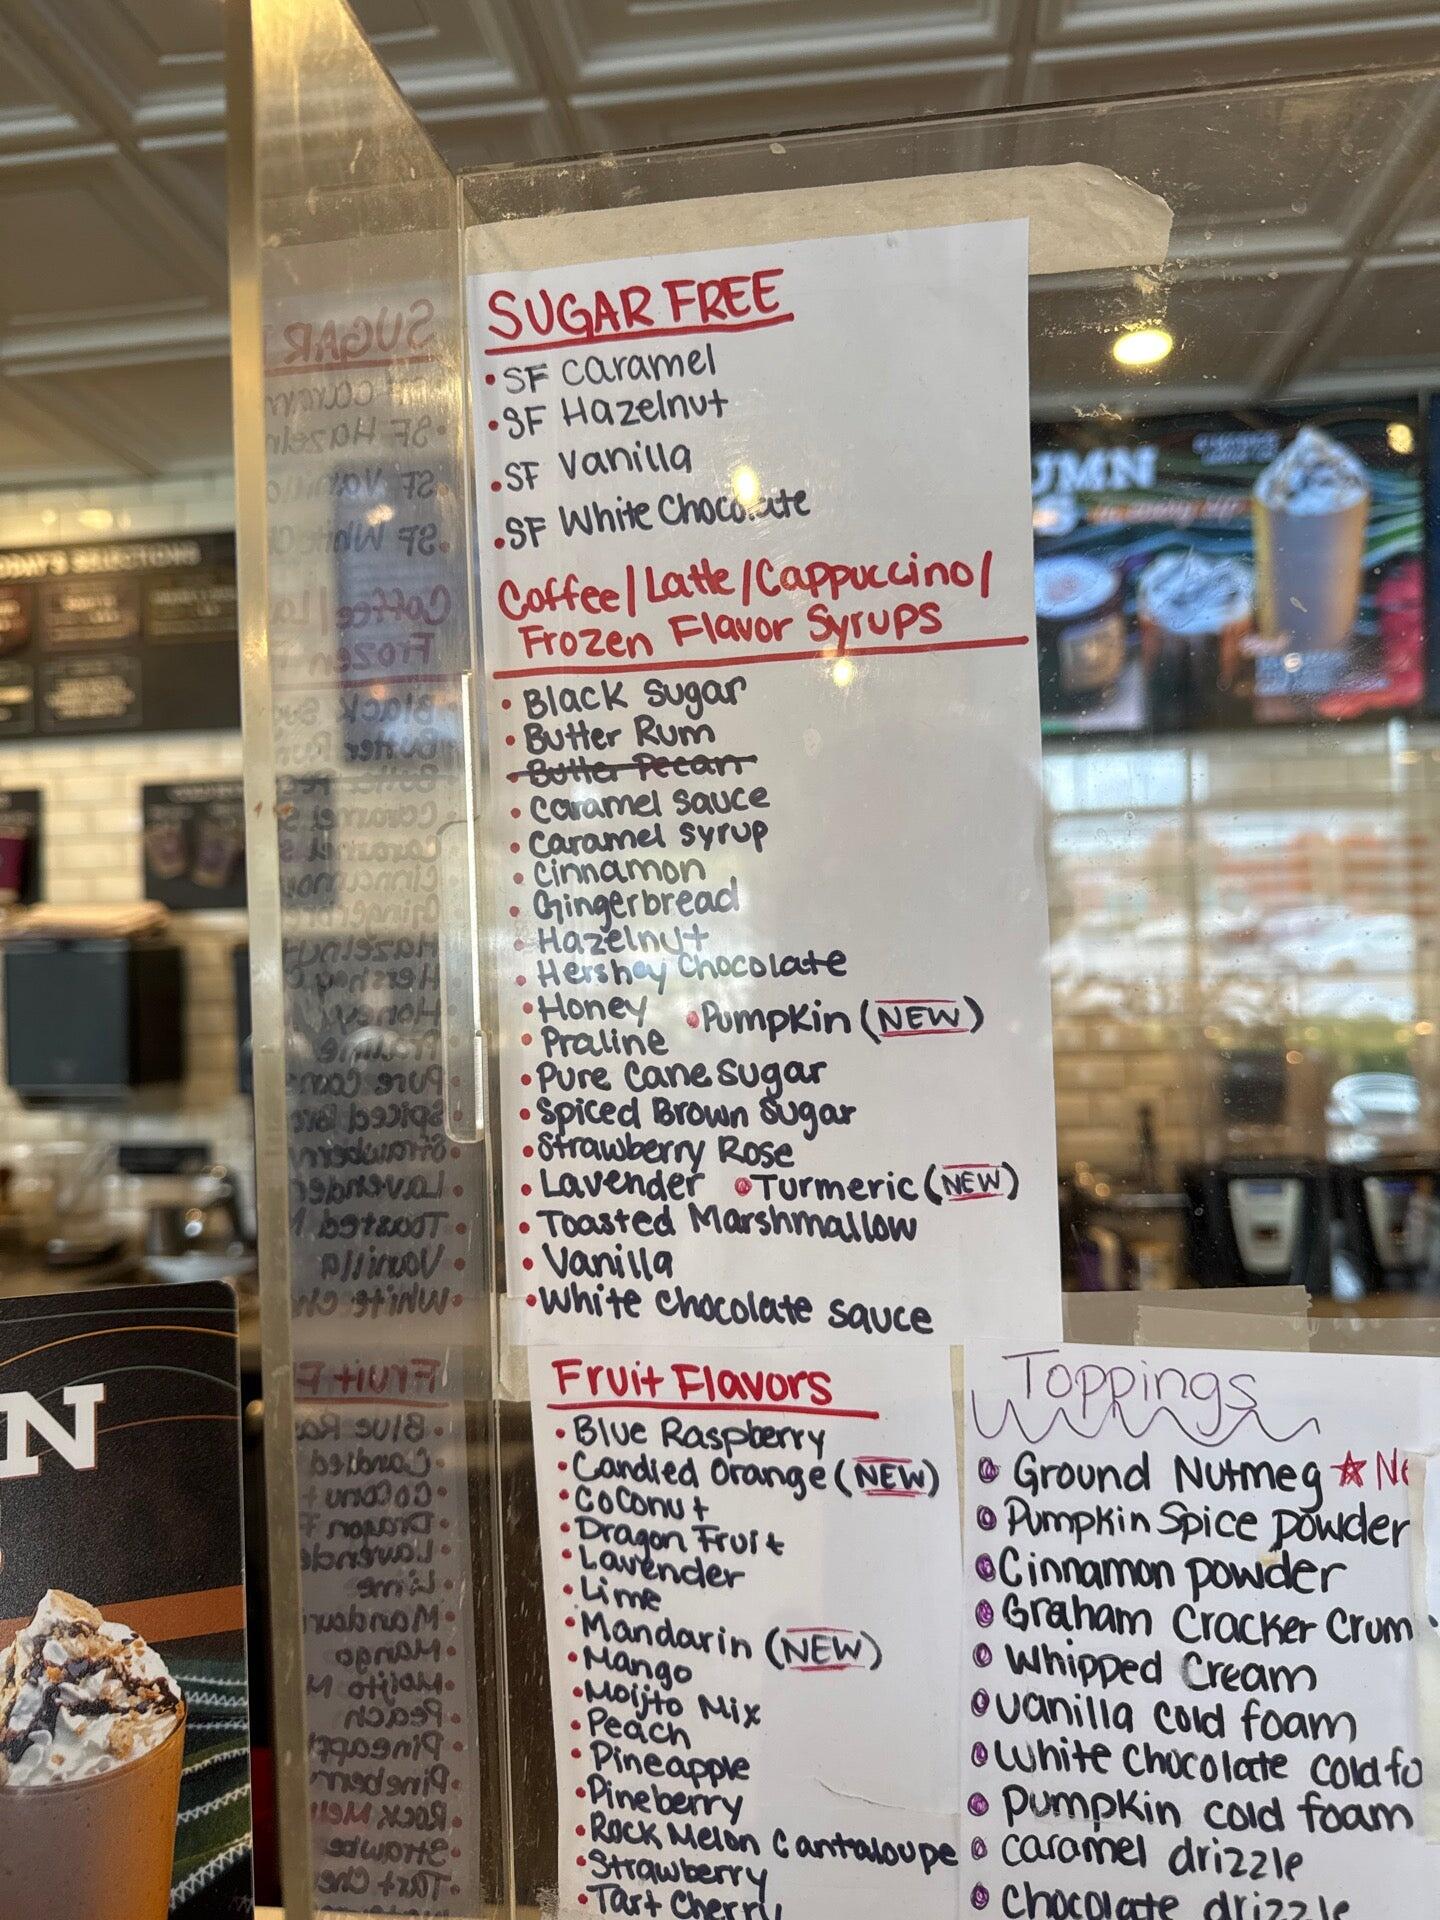 SUGAR FREE
• SF Caramel
• SF Hazelnut
• SF Vanilla
• SF White Chocolate
Coffee/Latte/Cappuccino/
Frozen Flavor Syrups
• Black Sugar
• Butter Rum
• Butter Pecan
• Caramel Sauce
• Caramel Syrup
• Cinnamon
• Gingerbread
• Hazelnut
• Hershey Chocolate
• Honey • Pumpkin (NEW)
• Praline
• Pure Cane Sugar
• Spiced Brown Sugar
• Strawberry Rose
• Lavender • Turmeric (NEW)
• Toasted Marshmallow
• Vanilla
• White Chocolate Sauce
Fruit Flavors
• Blue Raspberry
• Candied Orange (NEW)
• Coconut
• Dragon Fruit
• Lavender
• Lime
• Mandarin (NEW)
• Mango
• Moijto Mix
• Peach
• Pineapple
• Pineberry
• Rock Melon Cantaloupe
• Strawberry
• Tart Cherry
Toppings
• Ground Nutmeg ★
• Pumpkin Spice powder
• Cinnamon powder
• Graham Cracker Crum
• Whipped Cream
• Vanilla cold foam
• White Chocolate cold fo
• Pumpkin cold foam
• Caramel drizzle
• Chocolate drizzle
UMN
N